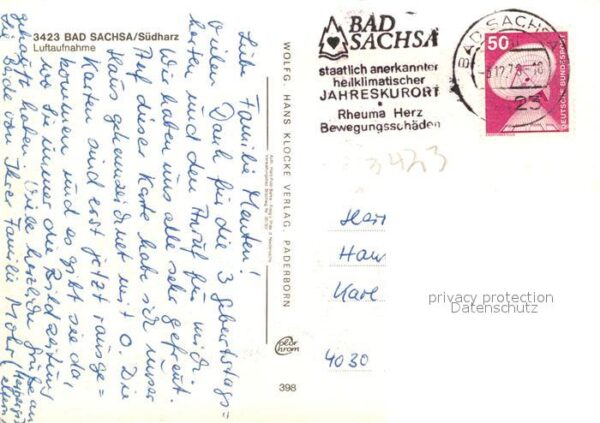 3423 BAD SACHSA/Südharz
Luftaufnahme
Liebe Familie Menten!
Vielen Dank für die 3 Geburtstags=
karten und den Anruf für mich.
Wir haben uns alle sehr gefreut.
Auf dieser Karte habe ich unser
Haus gekennzeichnet mit O. Die
Karten sind erst jetzt rausge=
kommen und es gibt sie da,
wo Sie immer die Bildzeitung
gekauft haben. Viele herzliche Grüße an
Sie Beide von Ihrer Familie Mohr
eltern)
WOLFG. HANS KLOCKE VERLAG, PADERBORN
color
chrom
398
BAD
SACHSA
staatlich anerkannter
heilklimatischer
JAHRESKURORT
Rheuma Herz
Bewegungsschäden
BAD SACHSA
23
50
DEUTSCHE BUNDESPOST
3423
Herr
Han
Karl
4030
privacy protection
Datenschutz